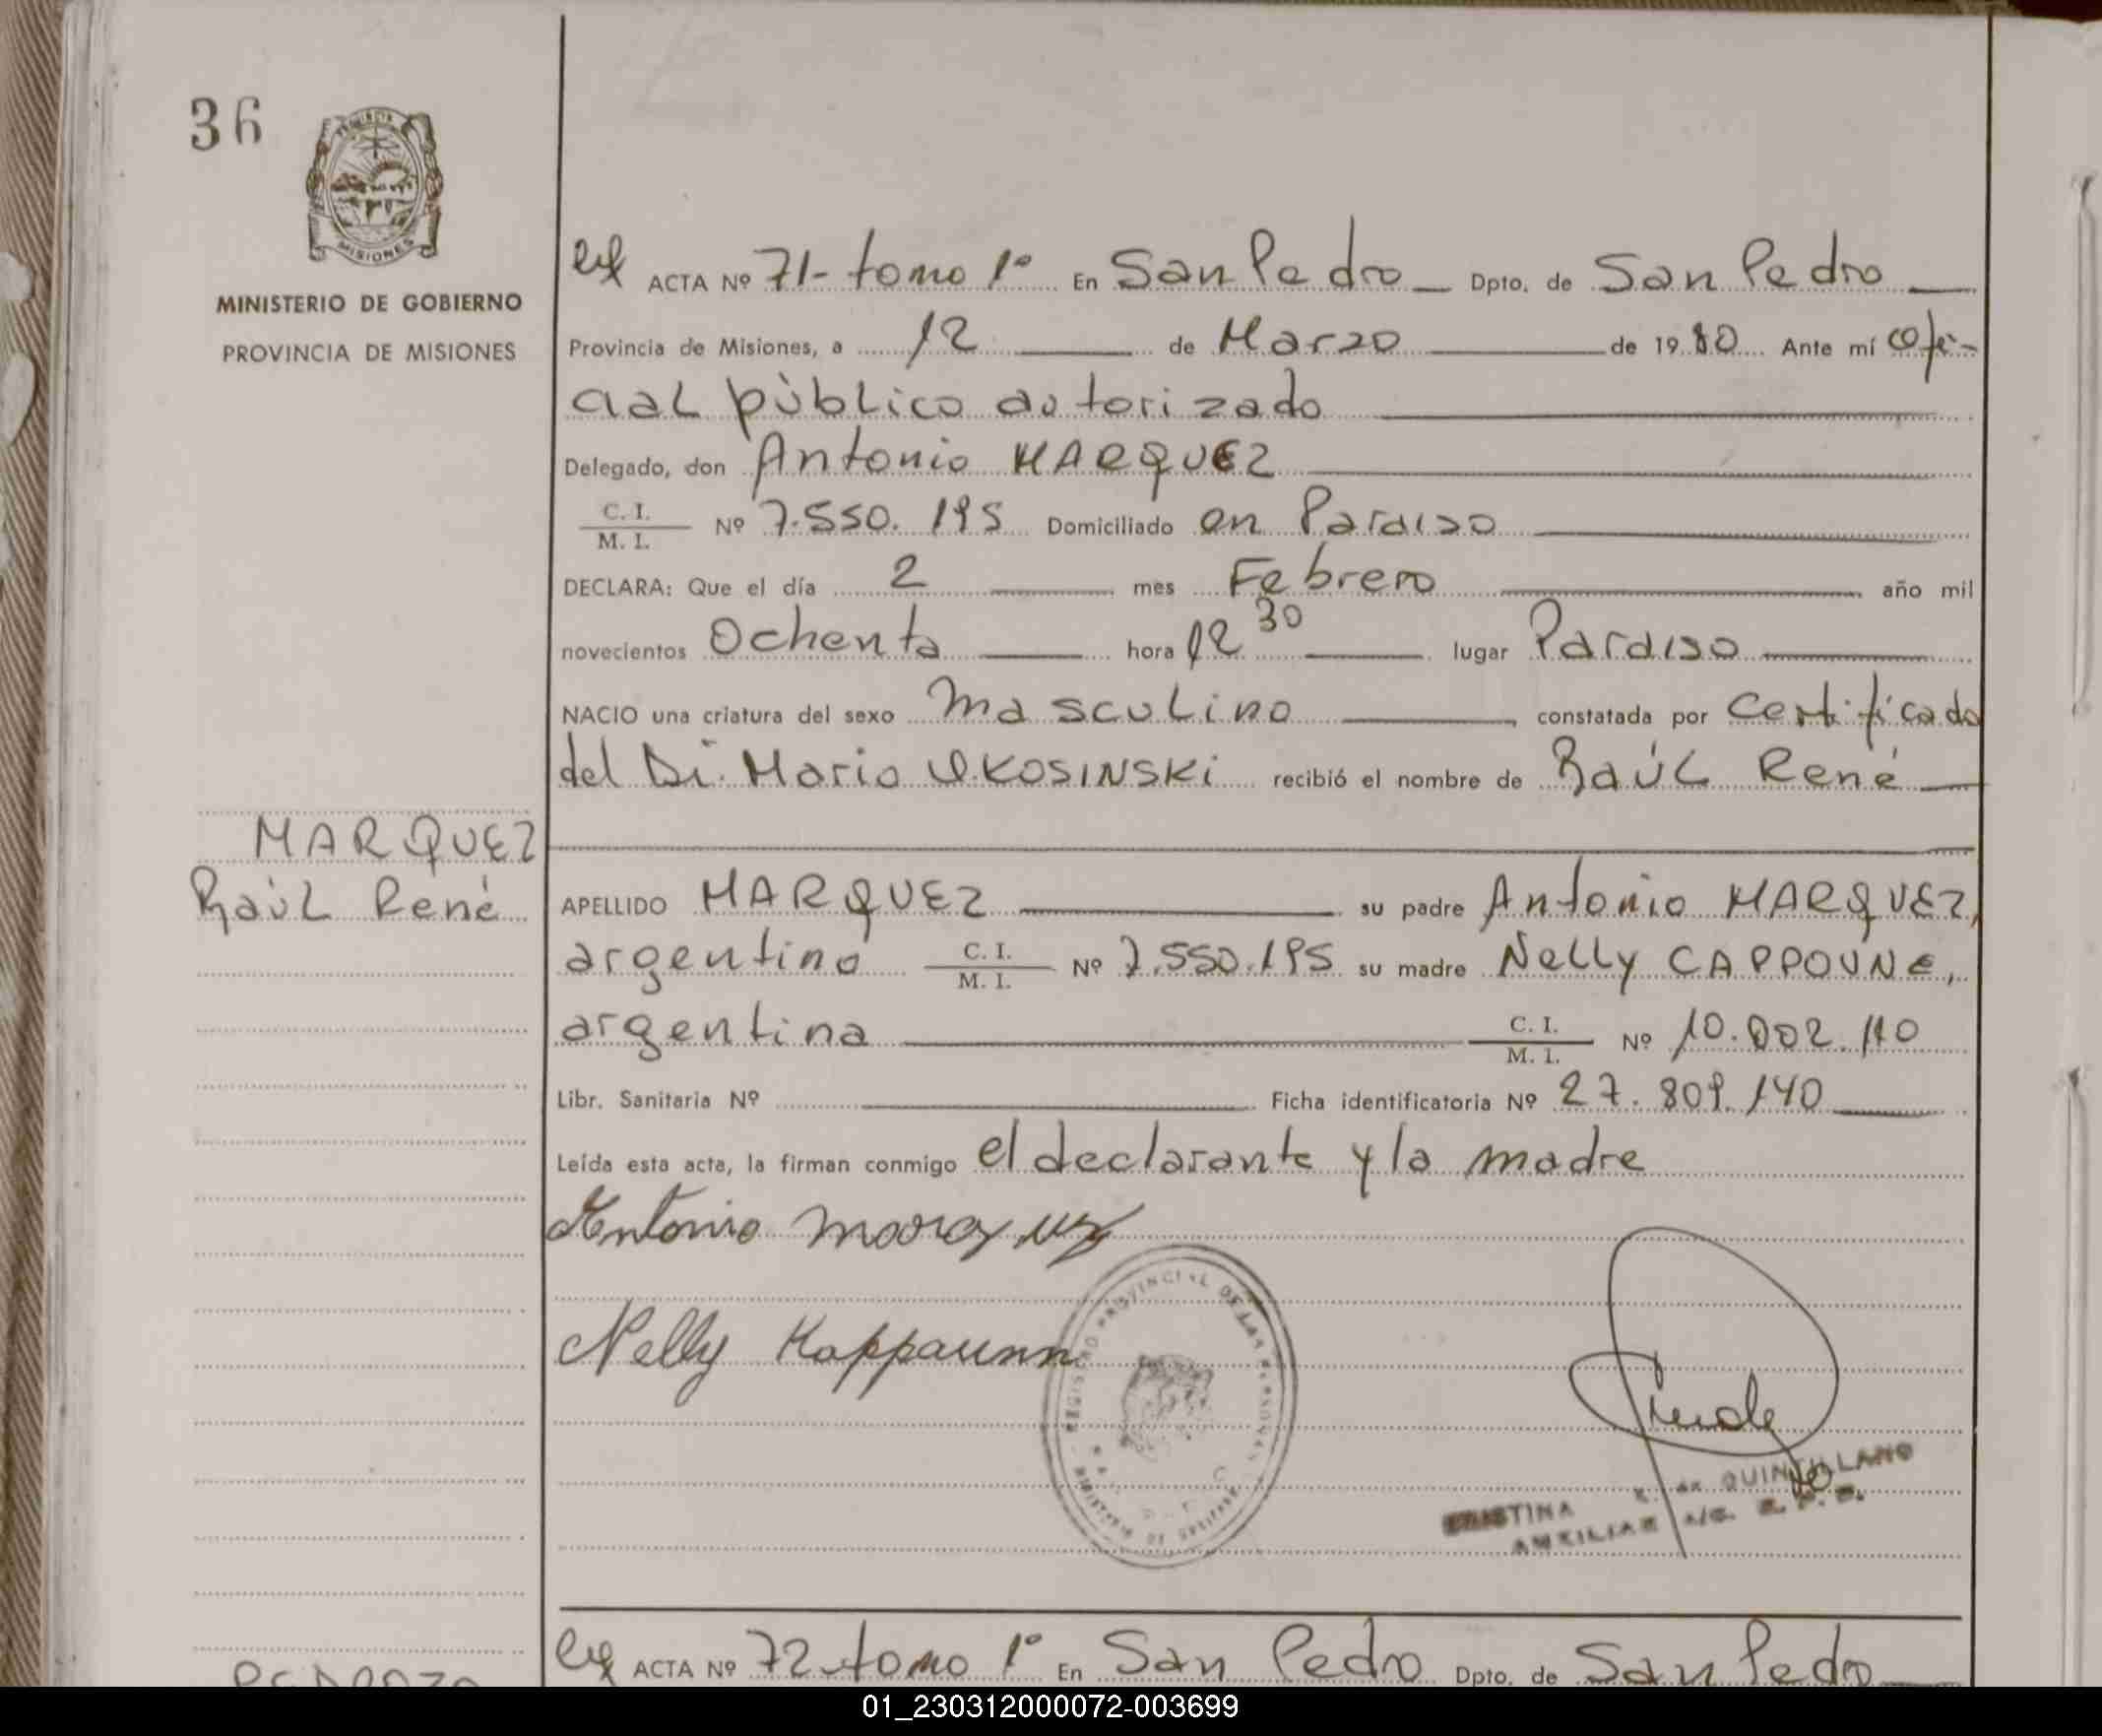 36
MINISTERIO DE GOBIERNO
PROVINCIA DE MISIONES
ACTA Nº 71- tomo 1º En San Pedro Dpto. de San Pedro
Provincia de Misiones, a 12 de Marzo de 1980 Ante mí ofi-
cial público autorizado
Delegado, don Antonio MARQUEZ
C. I.
M. I. Nº 7.550.195 Domiciliado en Paraiso
DECLARA: Que el día 2 mes Febrero año mil
novecientos Ochenta hora 12 30 lugar Paraiso
NACIO una criatura del sexo masculino, constatada por Certificado
del Dr. Mario OKOSINSKI recibió el nombre de Raúl René
MARQUEZ
Raúl René
APELLIDO MARQUEZ su padre Antonio MARQUEZ,
argentino C. I. M. I. Nº 7.550.195 su madre Nelly CAPPOUNE,
argentina C. I. M. I. Nº 10.002.110
Libr. Sanitaria Nº Ficha identificatoria Nº 27.809.140
Leída esta acta, la firman conmigo el declarante y la madre
Antonio Marquez
Nelly Kappaunn
REGISTRO PROVINCIAL DE LAS PERSONAS
MINISTERIO DE GOBIERNO
CRISTINA de QUINTILLANO
AUXILIAR A/C. R. P. P.
ACTA Nº 72 tomo 1º En San Pedro Dpto. de San Pedro
01_230312000072-003699